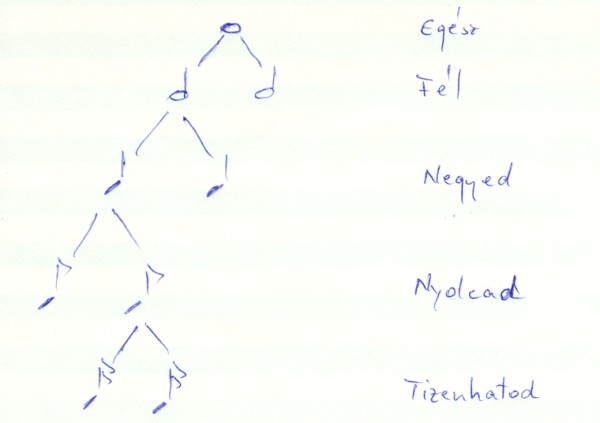 Egész
Fél
Negyed
Nyolcad
Tizenhatod